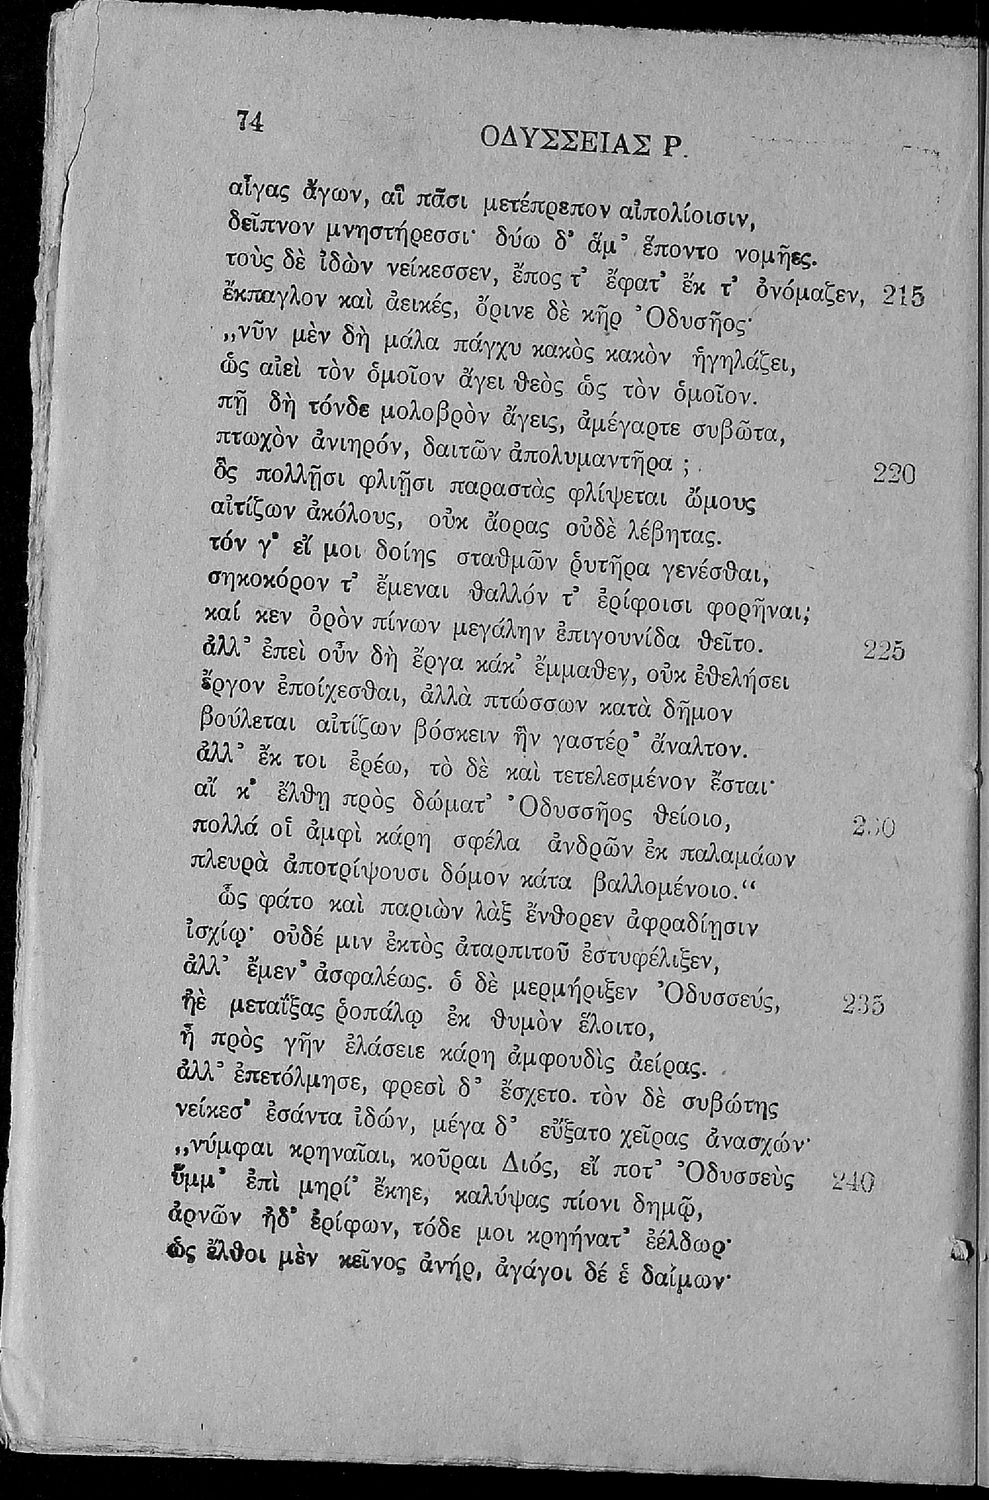 74
ΟΔΥΣΣΕΙΑΣ Ρ.
αἶγας ἄγων, αἳ πᾶσι μετέπρεπον αἰπολίοισιν,
δεῖπνον μνηστήρεσσι· δύω δ’ ἅμ’ ἕποντο νομῆες.
τοὺς δὲ ἰδὼν νείκεσσεν, ἔπος τ’ ἔφατ’ ἔκ τ’ ὀνόμαζεν, 215
ἔκπαγλον καὶ ἀεικές, ὄρινε δὲ κῆρ Ὀδυσῆος·
„νῦν μὲν δὴ μάλα πάγχυ κακὸς κακὸν ἡγηλάζει,
ὡς αἰεὶ τὸν ὁμοῖον ἄγει θεὸς ὡς τὸν ὁμοῖον.
πῇ δὴ τόνδε μολοβρὸν ἄγεις, ἀμέγαρτε συβῶτα,
πτωχὸν ἀνιηρόν, δαιτῶν ἀπολυμαντῆρα ; 220
ὃς πολλῇσι φλιῇσι παραστὰς φλίψεται ὤμους
αἰτίζων ἀκόλους, οὐκ ἄορας οὐδὲ λέβητας.
τόν γ’ εἴ μοι δοίης σταθμῶν ῥυτῆρα γενέσθαι,
σηκοκόρον τ’ ἔμεναι θαλλόν τ’ ἐρίφοισι φορῆναι,
καί κεν ὀρὸν πίνων μεγάλην ἐπιγουνίδα θεῖτο. 225
ἀλλ’ ἐπεὶ οὖν δὴ ἔργα κάκ’ ἔμμαθεν, οὐκ ἐθελήσει
ἔργον ἐποίχεσθαι, ἀλλὰ πτώσσων κατὰ δῆμον
βούλεται αἰτίζων βόσκειν ἣν γαστέρ’ ἄναλτον.
ἀλλ’ ἔκ τοι ἐρέω, τὸ δὲ καὶ τετελεσμένον ἔσται·
αἴ κ’ ἔλθῃ πρὸς δώματ’ Ὀδυσσῆος θείοιο, 230
πολλά οἱ ἀμφὶ κάρη σφέλα ἀνδρῶν ἐκ παλαμάων
πλευρὰ ἀποτρίψουσι δόμον κάτα βαλλομένοιο.“
ὣς φάτο καὶ παριὼν λὰξ ἔνθορεν ἀφραδίῃσιν
ἰσχίῳ· οὐδέ μιν ἐκτὸς ἀταρπιτοῦ ἐστυφέλιξεν,
ἀλλ’ ἔμεν’ ἀσφαλέως. ὁ δὲ μερμήριξεν Ὀδυσσεύς, 235
ἠὲ μεταΐξας ῥοπάλῳ ἐκ θυμὸν ἕλοιτο,
ἦ πρὸς γῆν ἐλάσειε κάρη ἀμφουδὶς ἀείρας.
ἀλλ’ ἐπετόλμησε, φρεσὶ δ’ ἔσχετο. τὸν δὲ συβώτης
νείκεσ’ ἐσάντα ἰδών, μέγα δ’ εὔξατο χεῖρας ἀνασχών·
„νύμφαι κρηναῖαι, κοῦραι Διός, εἴ ποτ’ Ὀδυσσεὺς 240
ὔμμ’ ἐπὶ μηρί’ ἔκηε, καλύψας πίονι δημῷ,
ἀρνῶν ἠδ’ ἐρίφων, τόδε μοι κρηήνατ’ ἐέλδωρ·
ὡς ἔλθοι μὲν κεῖνος ἀνήρ, ἀγάγοι δέ ἑ δαίμων·